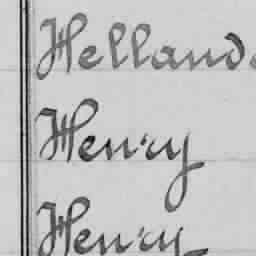 Helland
Henry
Henry